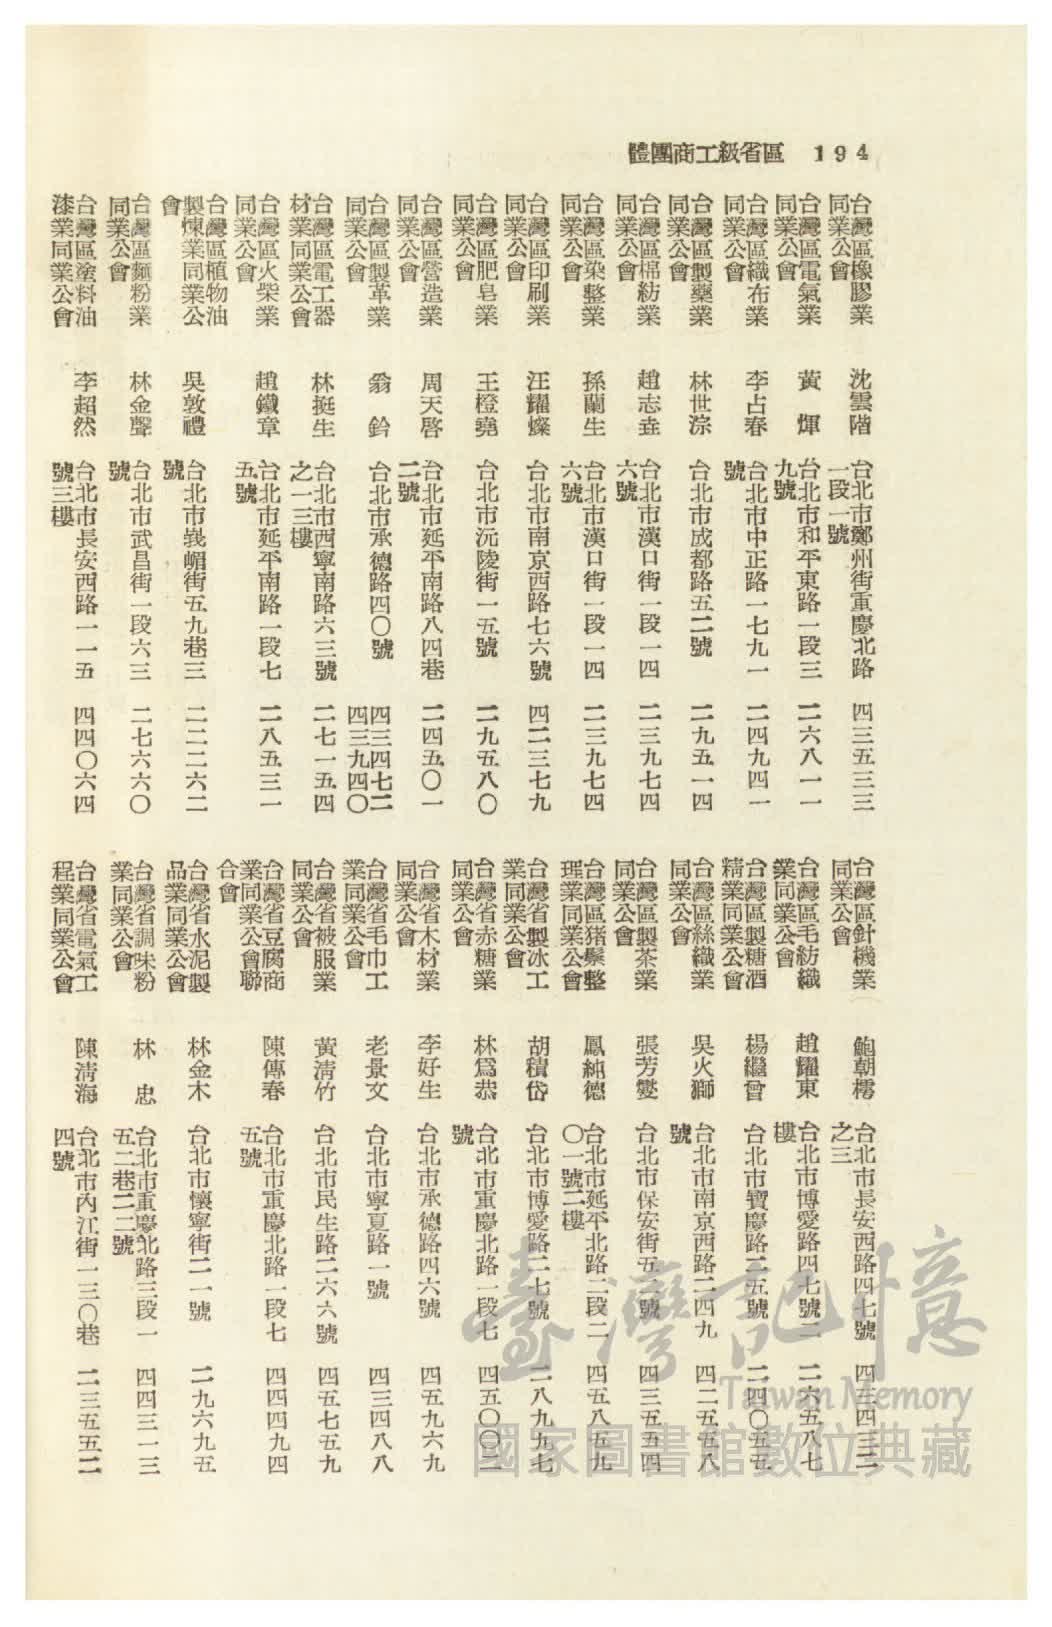 194　區省級工商團體
台灣區橡膠業同業公會　沈雲階　台北市鄭州街重慶北路一段一號　四三五三三
台灣區電氣業同業公會　黃煇　台北市和平東路一段三九號　二六八一一
台灣區織布業同業公會　李占春　台北市中正路一七九一號　二四九四一
台灣區製藥業同業公會　林世淙　台北市成都路五二號　二九五一四
台灣區棉紡業同業公會　趙志垚　台北市漢口街一段一四六號　二三九七四
台灣區染整業同業公會　孫蘭生　台北市漢口街一段一四六號　二三九七四
台灣區印刷業同業公會　汪耀燦　台北市南京西路七六號　四二三七九
台灣區肥皂業同業公會　王橙堯　台北市沅陵街一五號　二九五八〇
台灣區營造業同業公會　周天啓　台北市延平南路八四巷二號　二四五〇一
台灣區製革業同業公會　翁鈐　台北市承德路四〇號　四三四七二　四三九四〇
台灣區電工器材業同業公會　林挺生　台北市西寧南路六三號之一三樓　二七一五四
台灣區火柴業同業公會　趙鐵章　台北市延平南路一段七五號　二八五三一
台灣區植物油製煉業同業公會　吳敦禮　台北市峩嵋街五九巷三號　二二二六二
台灣區麵粉業同業公會　林金聲　台北市武昌街一段六三號　二七六六〇
台灣區塗料油漆業同業公會　李超然　台北市長安西路一一五號三樓　四四〇六四
台灣區針織業同業公會　鮑朝橒　台北市長安西路四七號之三　四三四三二
台灣區毛紡織業同業公會　趙耀東　台北市博愛路四七號二樓　二六五八七
台灣區製糖酒精業同業公會　楊繼曾　台北市寶慶路二五號　二四〇五五
台灣區絲織業同業公會　吳火獅　台北市南京西路二四九號　四二五五八
台灣區製茶業同業公會　張芳燮　台北市保安街五二號　四三五五四
台灣區猪鬃整理業同業公會　鳳純德　台北市延平北路二段二〇一號二樓　四五八五九
台灣省製冰工業同業公會　胡積岱　台北市博愛路二七號　二八九九七
台灣省赤糖業同業公會　林爲恭　台北市重慶北路一段七號　四五〇〇二
台灣省木材業同業公會　李好生　台北市承德路四六號　四五九六九
台灣省毛巾工業同業公會　老景文　台北市寧夏路一號　四三四八八
台灣省被服業同業公會　黃清竹　台北市民生路二六六號　四五七五九
台灣省豆腐商業同業公會聯合會　陳傳春　台北市重慶北路一段七五號　四四四九四
台灣省水泥製品業同業公會　林金木　台北市懷寧街二一號　二九六九五
台灣省調味粉業同業公會　林忠　台北市重慶北路三段一五二巷二二號　四四三一三
台灣省電氣工程業同業公會　陳清海　台北市內江街一三〇巷四號　二三五五二
臺灣記憶
Taiwan Memory
國家圖書館數位典藏